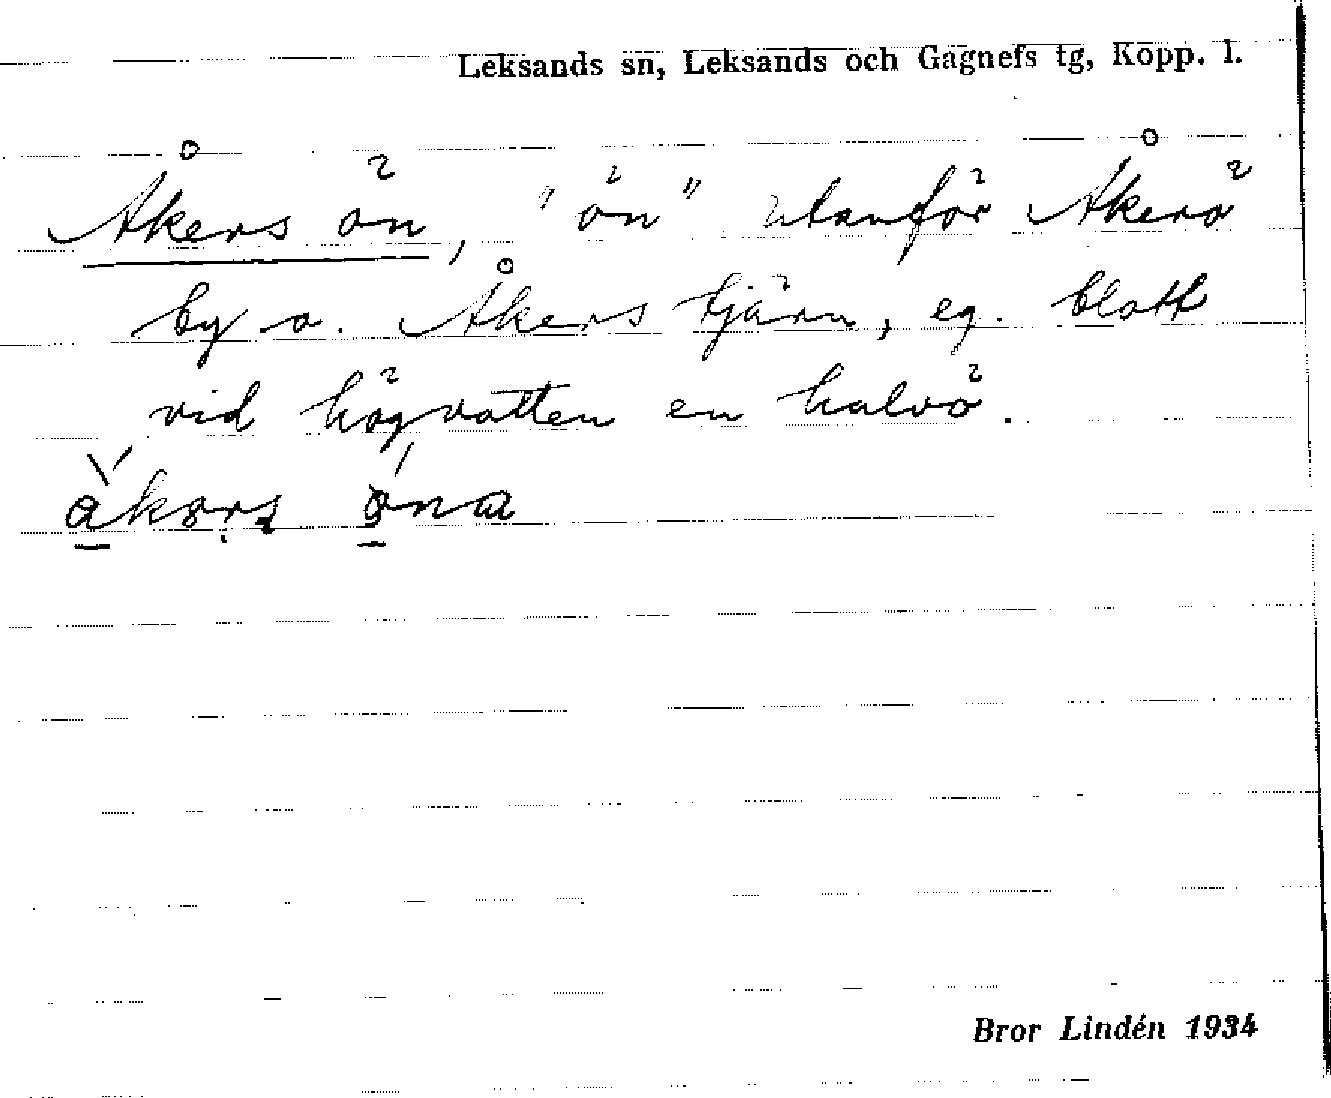 Leksands sn, Leksands och Gagnefs tg, Kopp. l.
Åkers ön, "ön" utanför Åkerö
by o. Åkers tjärn, eg. blott
vid högvatten en halvö.
Bror Lindén 1934